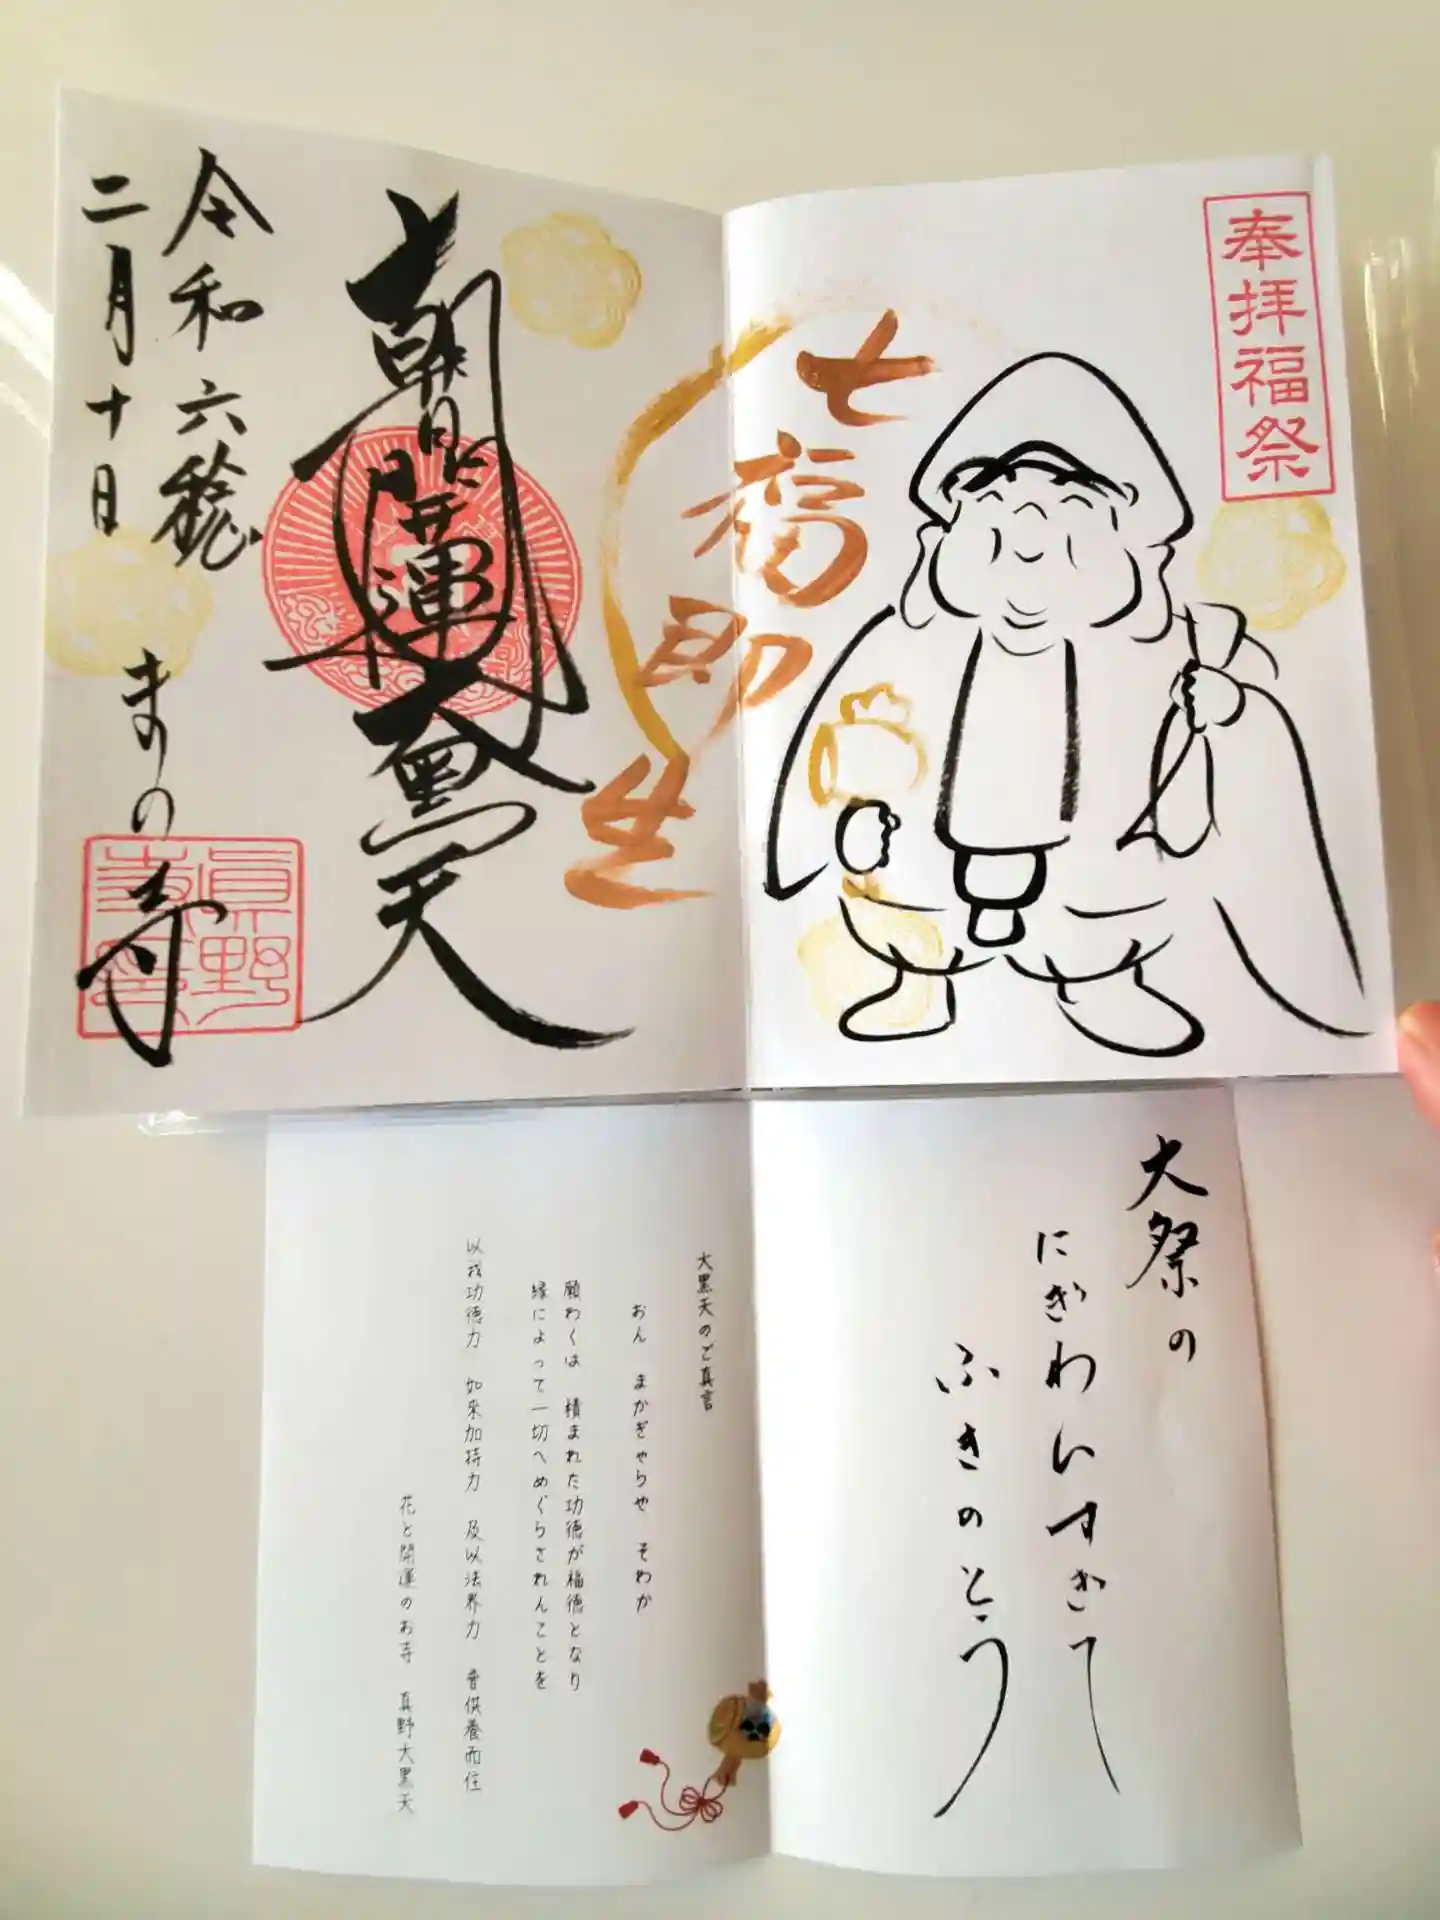 奉拝福祭
七福即生
朝日開運大黒天
令和六稔
二月十日
まの寺
大祭の
にぎわいすぎて
ふきのとう
大黒天のご真言
おん まかぎゃらや そわか
願わくは 積まれた功徳が福徳となり
縁によって一切へめぐらされんことを
以我功徳力 如来加持力 及以法界力 普供養而住
花と開運のお寺 真野大黒天